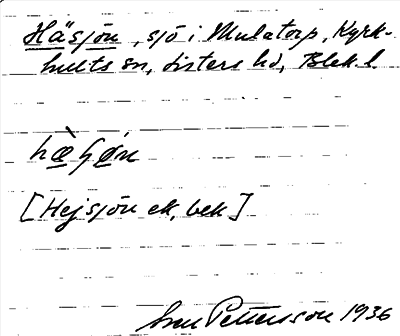 Häsjön, sjö i Mulatorp, Kyrk-
hults sn, Listers hd, Blek. l.
[Hejsjön ek, bek]
Sven Pettersson 1936